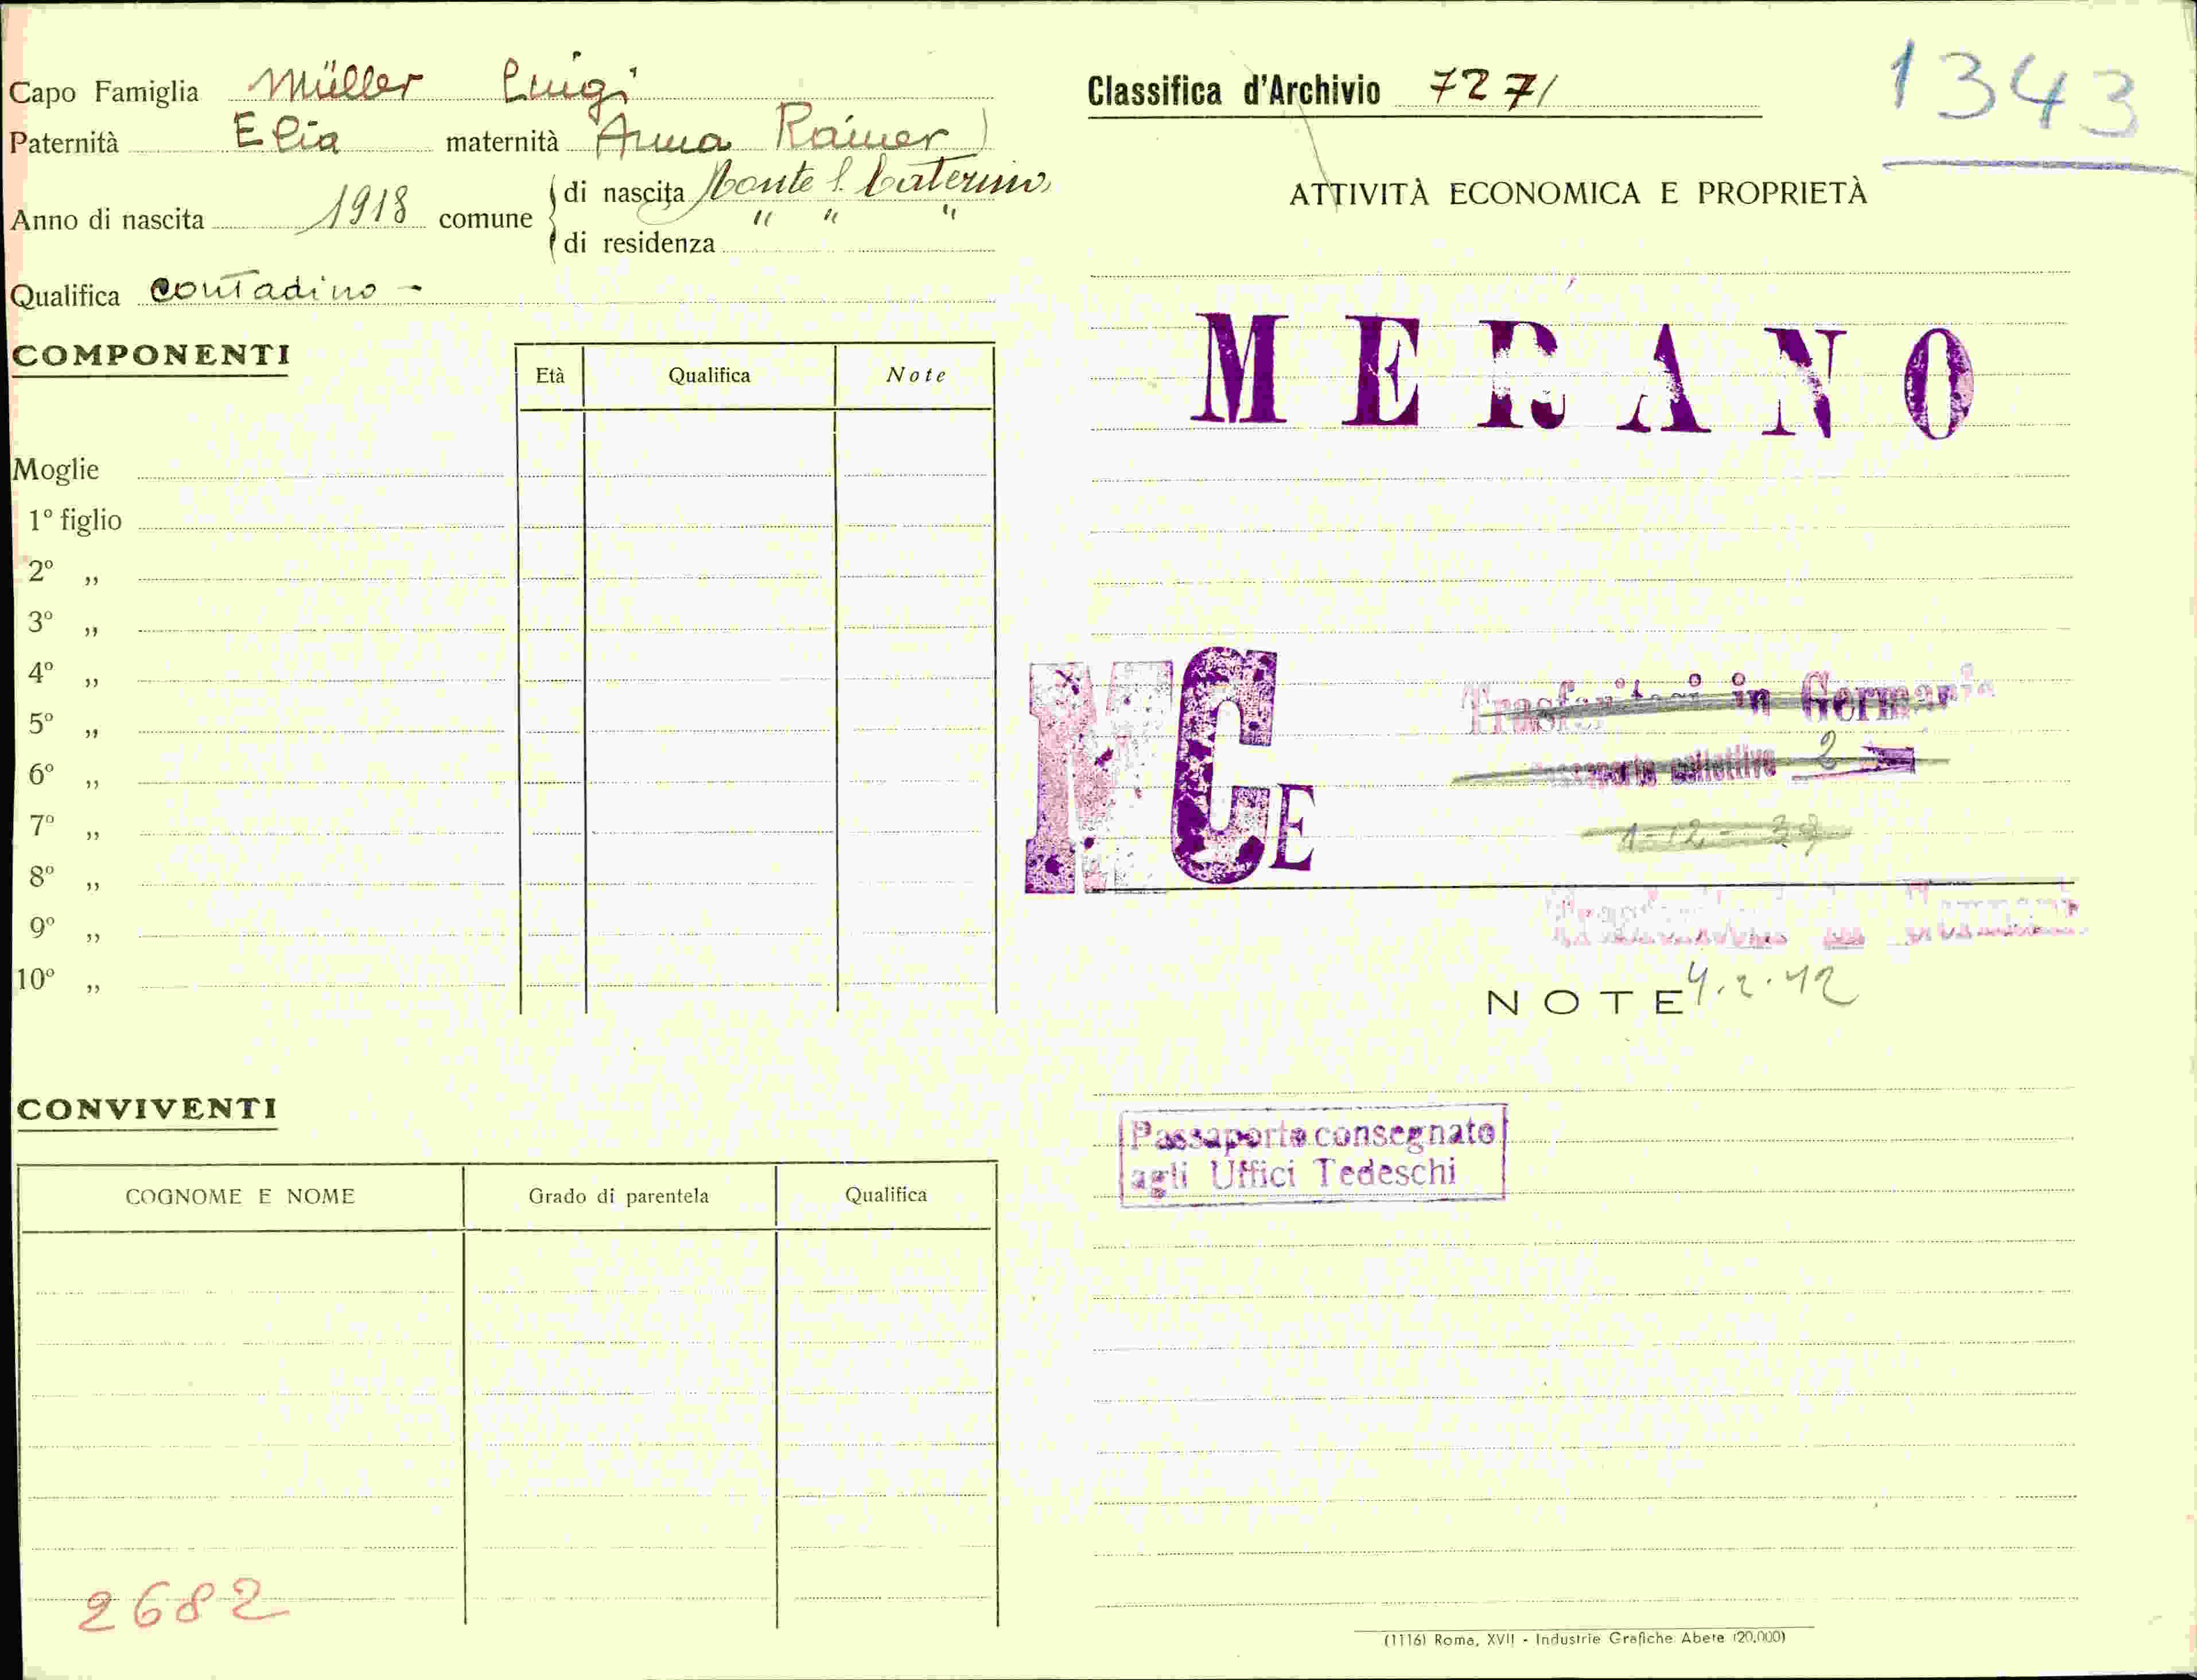 Capo Famiglia Müller Luigi
Paternità Elia maternità Anna Rainer
Anno di nascita 1918 comune di nascita Monte S. Caterina
di residenza " " "
Qualifica contadino -
COMPONENTI
Età Qualifica Note
Moglie
1º figlio
2º „
3º „
4º „
5º „
6º „
7º „
8º „
9º „
10º „
CONVIVENTI
COGNOME E NOME Grado di parentela Qualifica
2682
Classifica d'Archivio 727/
1343
ATTIVITÀ ECONOMICA E PROPRIETÀ
MERANO
M C E
Trasferitosi in Germania
Passaporto collettivo 2
1-12-39
Trasferitosi in Germania
NOTE 4.2.42
Passaporto consegnato
agli Uffici Tedeschi
(1116) Roma, XVII - Industrie Grafiche Abete (20.000)